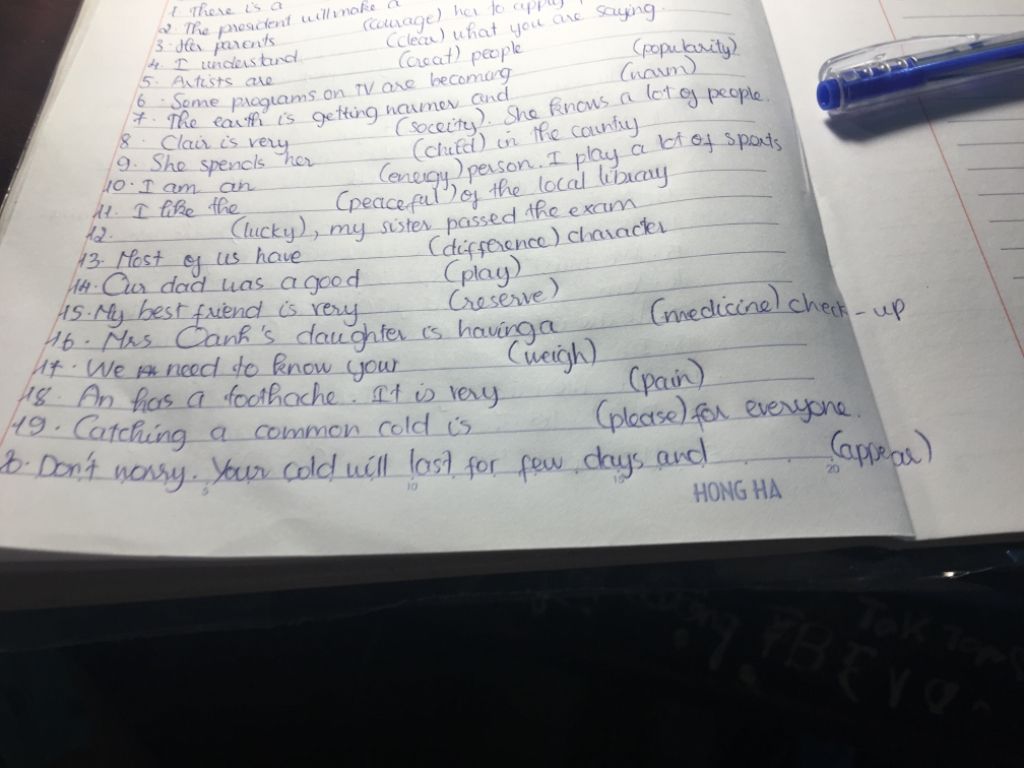 1. There is a
2. The president will make a
3. Her parents (courage) her to apply
4. I understand (clear) what you are saying.
5. Artists are (creat) people
6. Some programs on TV are becoming (popularity)
7. The earth is getting warmer and (warm)
8. Clair is very (soceity). She knows a lot of people.
9. She spends her (child) in the country
10. I am an (energy) person. I play a lot of sports
11. I like the (peaceful) of the local library
12. (lucky), my sister passed the exam
13. Most of us have (difference) character
14. Our dad was a good (play)
15. My best friend is very (reserve)
16. Mrs Oanh's daughter is having a (medicine) check-up
17. We need to know your (weigh)
18. An has a toothache. It is very (pain)
19. Catching a common cold is (please) for everyone.
20. Don't worry. Your cold will last for few days and (appear)
5 10 15 20
HONG HA